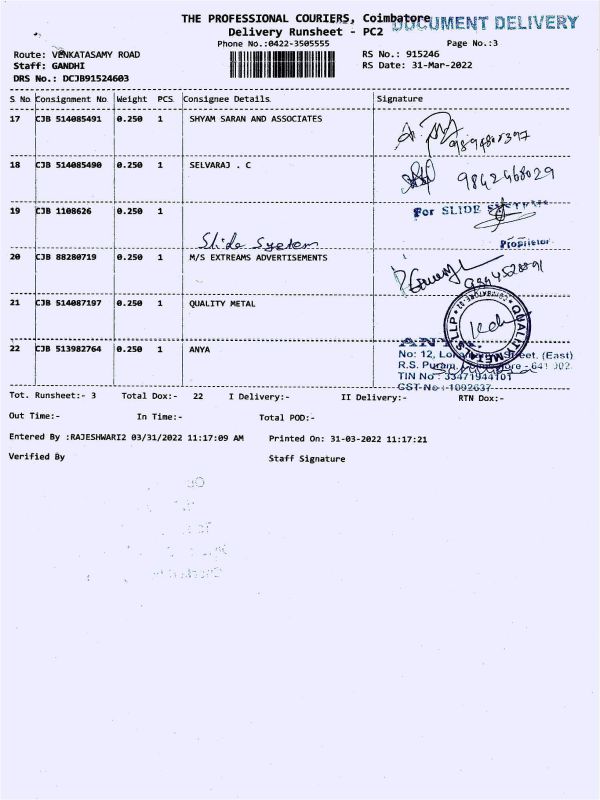 THE PROFESSIONAL COURIERS, Coimbatore
DOCUMENT DELIVERY
Delivery Runsheet - PC2
Phone No.:0422-3505555
Page No.:3
Route: VENKATASAMY ROAD
RS No.: 915246
Staff: GANDHI
RS Date: 31-Mar-2022
DRS No.: DCJB91524603
S No Consignment No Weight PCS Consignee Details Signature
17 CJB 514085491 0.250 1 SHYAM SARAN AND ASSOCIATES
18 CJB 514085490 0.250 1 SELVARAJ . C
9842468029
19 CJB 1108626 0.250 1
For SLIDE
Slide System
Proprietor
20 CJB 88280719 0.250 1 M/S EXTREAMS ADVERTISEMENTS
21 CJB 514087197 0.250 1 QUALITY METAL
22 CJB 513982764 0.250 1 ANYA
No: 12, Street, (East)
R.S. Puram, - 641 002
TIN No : 33471944101
CST No : 1092637
Tot. Runsheet:- 3 Total Dox:- 22 I Delivery:- II Delivery:- RTN Dox:-
Out Time:- In Time:- Total POD:-
Entered By :RAJESHWARI2 03/31/2022 11:17:09 AM Printed On: 31-03-2022 11:17:21
Verified By Staff Signature